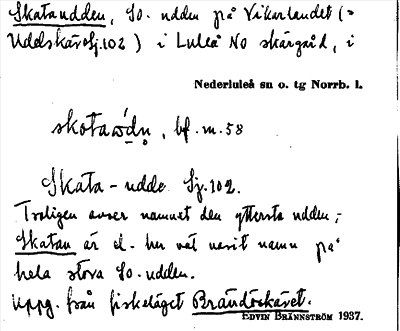 Skataudden, SO. udden på Vikarlandet (=
Uddskäret Sj.102) i Luleå NO skärgård, i
Nederluleå sn o. tg Norrb. l.
skotaὼdn̥, bf. m. 58
Skata-udde Sj.102.
Troligen avser namnet den yttersta udden;
Skatan är el. har väl varit namn på
hela stora SO.-udden.
Uppg. från fiskeläget Brändöskäret.
EDVIN BRÄNNSTRÖM 1937.